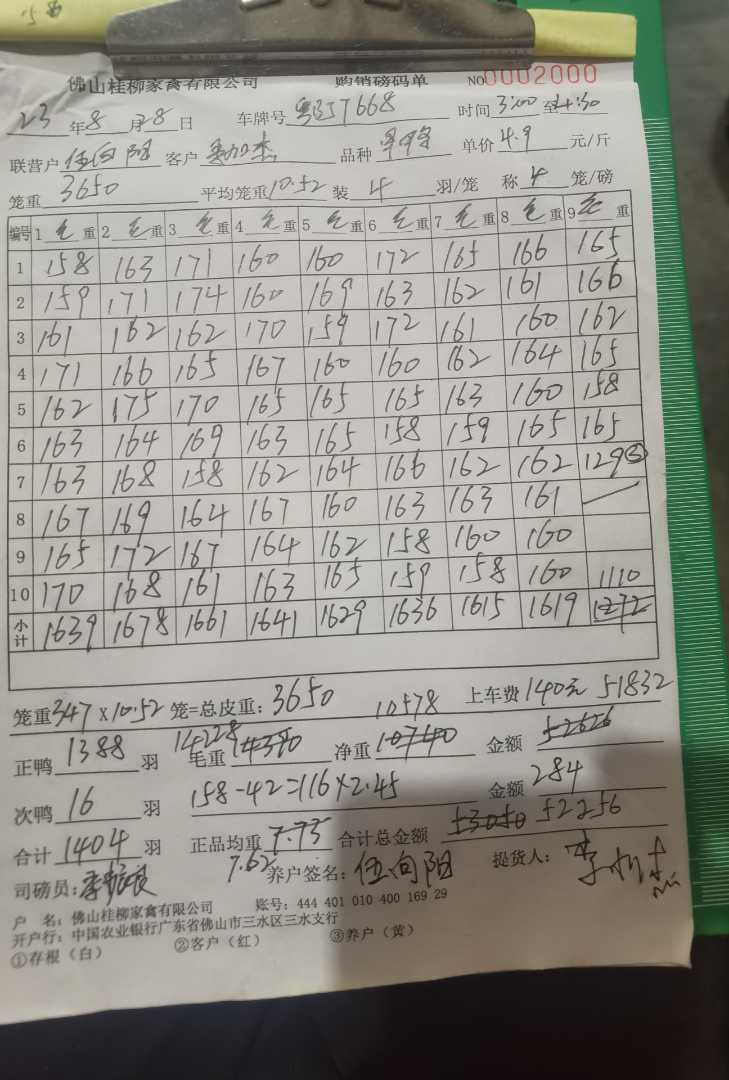 佛山桂柳家禽有限公司 购销磅码单 NO 0002000
23年8月28日 车牌号 时间3:00至4:30
联营户伍向阳 客户 品种 单价4.9元/斤
笼重3650 平均笼重10.52 装4羽/笼 称4笼/磅
编号 1毛重 2毛重 3毛重 4毛重 5毛重 6毛重 7毛重 8毛重 9毛重
1 158 163 171 160 160 172 165 166 165
2 159 171 174 160 169 163 162 161 166
3 161 162 162 170 159 172 161 160 162
4 171 166 165 167 160 160 162 164 165
5 162 175 170 165 165 165 163 160 158
6 163 164 169 163 165 158 159 165 165
7 163 168 158 162 164 166 162 162 129③
8 167 169 164 167 160 163 163 161
9 165 172 167 164 162 158 160 160
10 170 168 161 163 165 159 158 160 1110
小计 1639 1678 1661 1641 1629 1636 1615 1619 1272
笼重347×10.52笼=总皮重:3650 10578 上车费140元 51832
正鸭1388羽 毛重14228 14390 净重10740 金额52626
次鸭16羽 158-42=116×2.45 金额284
合计1404羽 正品均重7.75 合计总金额53050 52256
司磅员: 7.62 养户签名:伍向阳 提货人:
户 名:佛山桂柳家禽有限公司 账号:444 401 010 400 169 29
开户行:中国农业银行广东省佛山市三水区三水支行
①存根(白) ②客户(红) ③养户(黄)